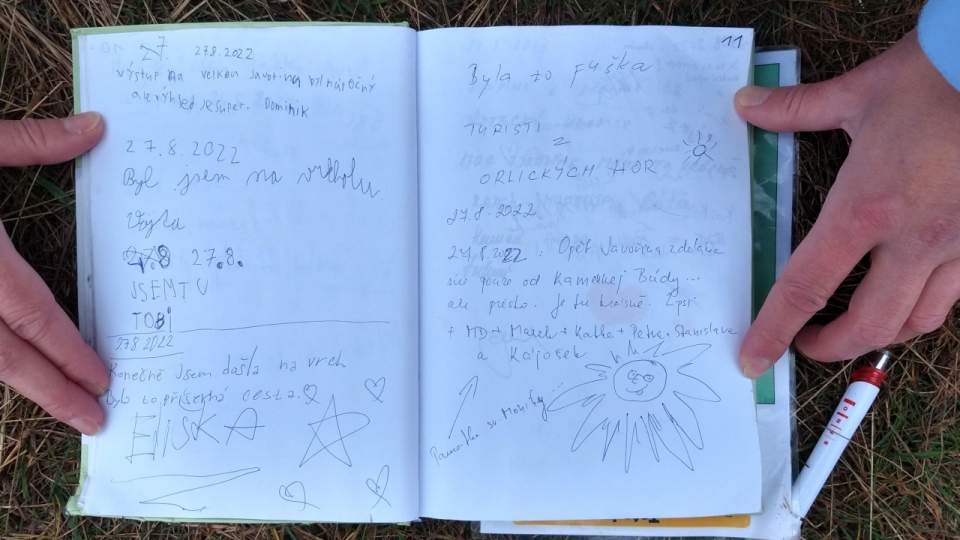 27.8.2022
výstup na velkou Javořinu byl náročný
ale výhled je super. Dominik
27.8.2022
Byl jsem na vrcholu
27.8.
JSEM TU
TOBI
27.8.2022
Konečně Jsem došla na vrch
bylo to příšerná cesta.
EliŠKA
11
Byla to Fuška
TURISTI
Z
ORLICKÝCH HOR
27.8.2022
27.8.2022: Opět Javořina zdolána
pouze od Kamenné Búdy...
ale přesto. Je tu krásně.
+ MD + Marek + Katka + Petra, Stanislava
a Kajosek